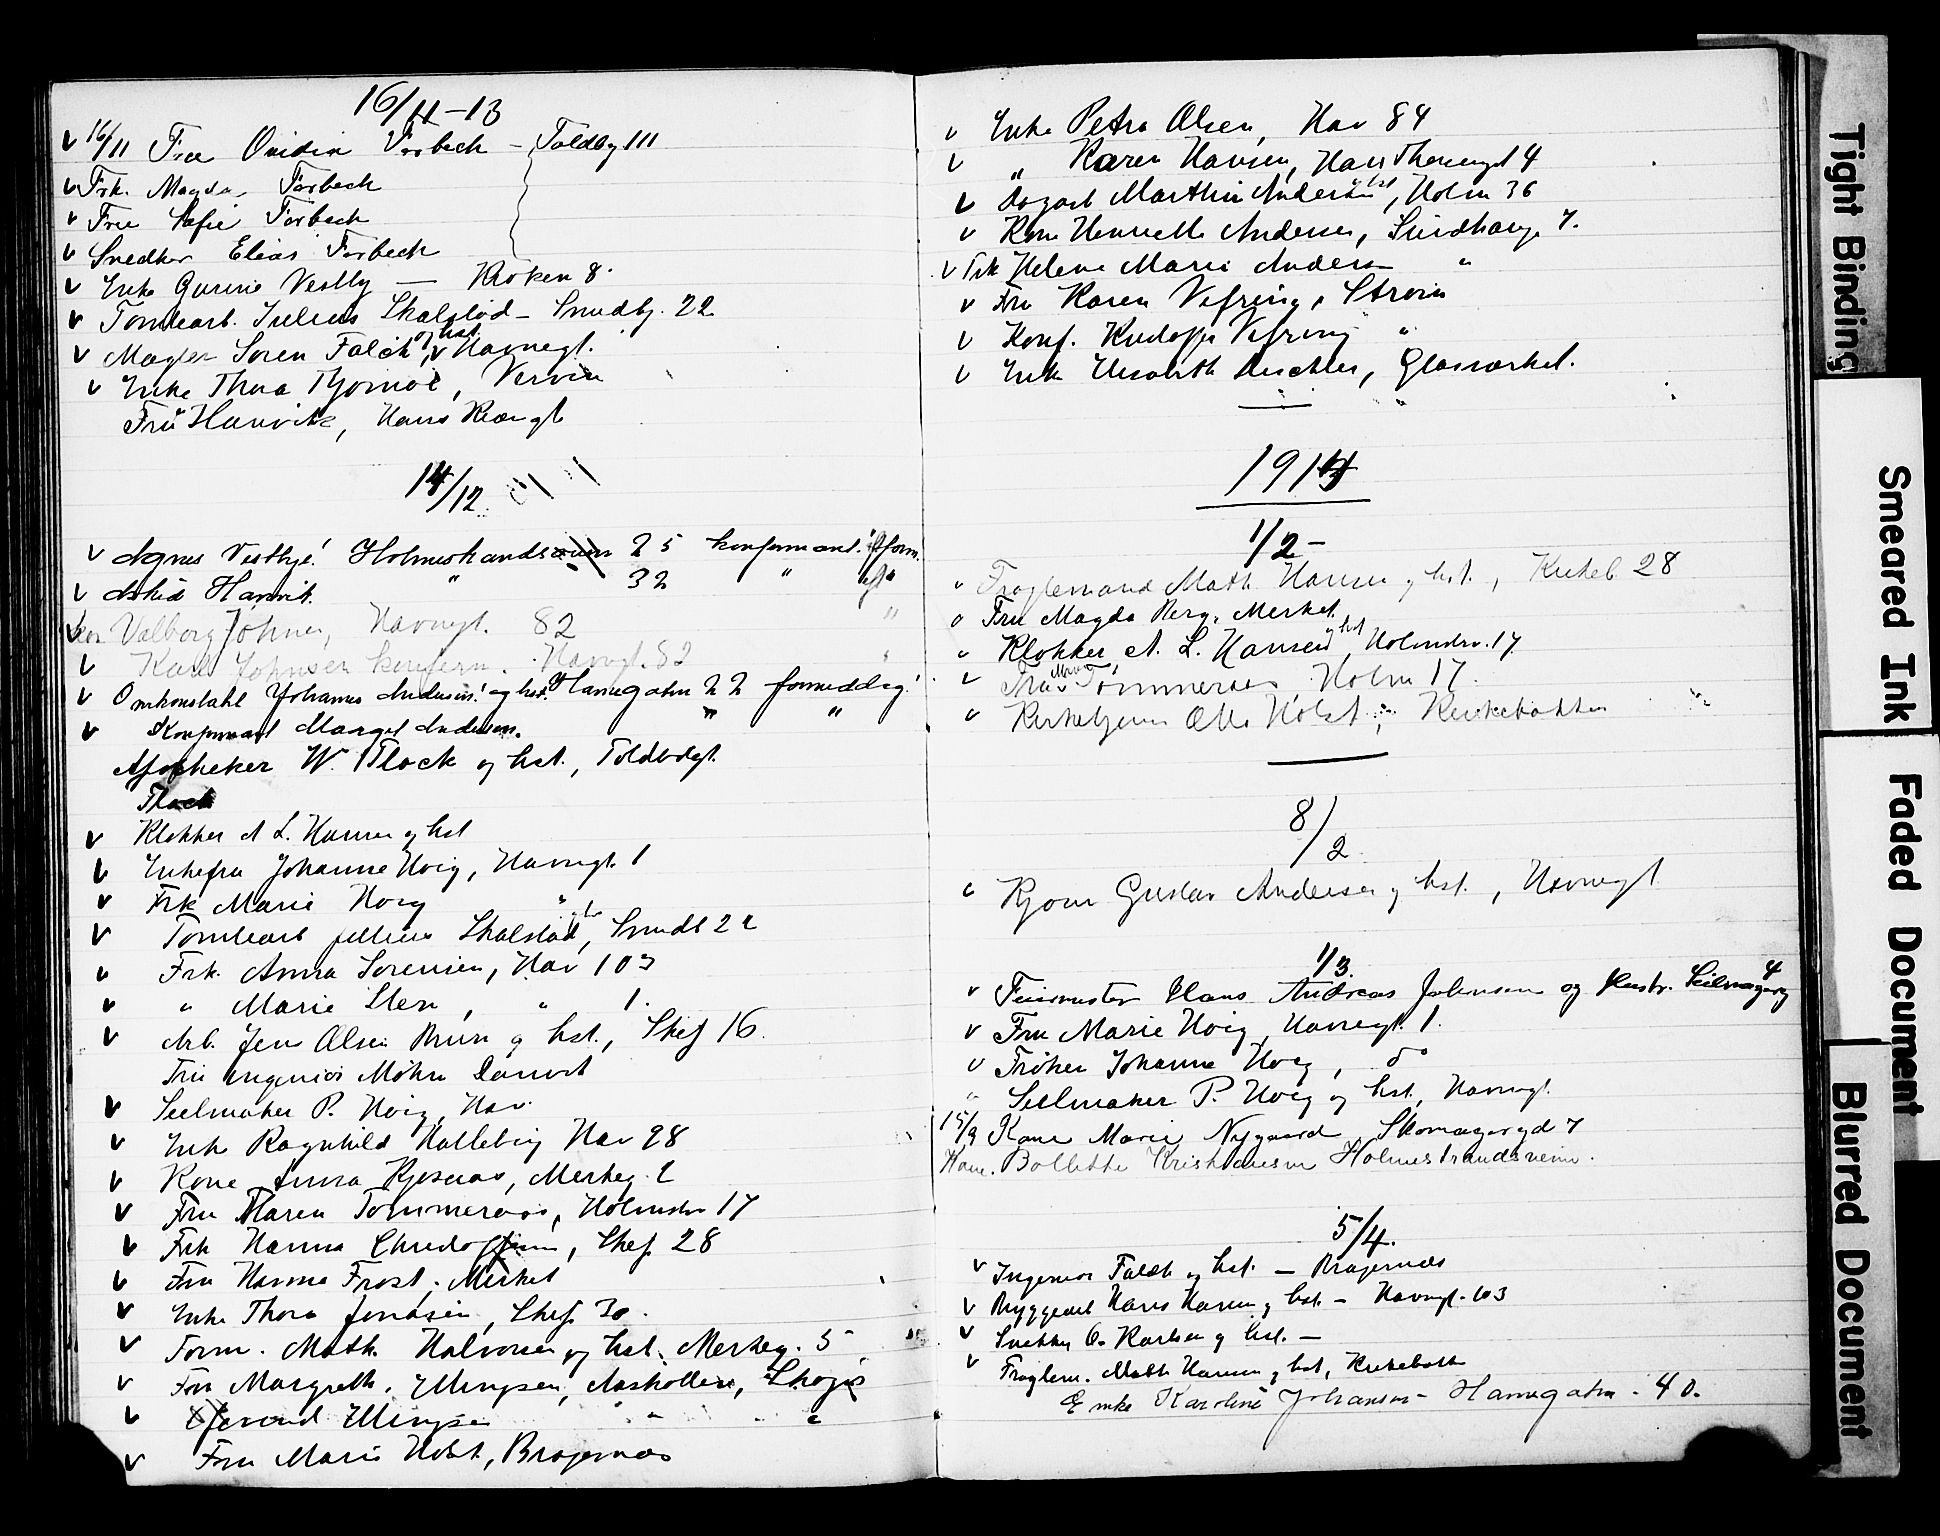 16/11-13
v 16/11 Fru Ovidia Forbech - Toldbg 111
v Frk. Magda Forbech
v Fru Sofie Forbech
v Snedker Elias Forbech
v Enke Gurine Vestby — Kroken 8.
v Tomtearb. Julius Skalstöd - Smedbg. 22
v Mægler Soren Falck og hst. Havnegt.
v Enke Thora Tjomøe, Verven
Fru Hanvik, Hans Kiærsgt
14/12
v Agnes Vestbye! Holmestrandsveien 25 konfirmant. iform.
v Astrid Hanvik. " 32 " "
v Valborg Johnsen, Havnegt. 82 "
v Karl Johnsen konfirm. Havngt. 82 "
v Omkonstabl Johannes Andersen! og hst. Havnegaten 22 formiddag!
v Konfirmant Margit Andersen. " "
Apotheker W. Flock og hst., Toldbodgt.
Flock
v Klokker A L. Hansen og hst
v Enkefru Johanne Hoig, Havnegt. 1
v Frk Marie Hoeg "
v Tomtearb Julius Skalstöd, Smedb 22
v Frk. Anna Sorensen, Hav 103
v " Marie Sten, " 1.
v Arb. Jens Olsen Bruun og hst., Skof 16.
Fru Ingeniør Møhn Danvik
v Seilmaker P. Hoig, Hav.
v Enke Ragnhild Hallebrig Hav 98
v Kone Anna Kjosnæs, Merkeg. 2
v Fru Maren Tommeraas, Holmstr 17
v Frk Hanna Christoffersen, Skof. 28
v Fru Hanna Frost, Merket
v Enke Thora Jonasen, Skof. 30.
v Form. Math. Halvorsen og hst. Merkeg. 5
v Fru Margrethe Ellingsen, Aaskollen, Skoger
v Ellingsen " "
v Fru Marie Holst, Bragernæs
v Enke Petra Olsen, Hav 84
v " Karen Hansen, Hav 4
v Marthin Andersen og hst, Holm 36
v Kone Henriette Andersen, Sundhaug. 7.
v Frk Helene Marie Andersen "
v Fru Karen Vefring, Strøm
v Konf. Vefring "
v Enke Elisabeth Dischler, Glasværket.
1914
1/2 -
" Faglemand Math Hansen og hst., Kirkeb. 28
" Fru Magda Berg, Merket.
" Klokker A. L. Hansen og hst, Holmstr. 17
" Fru Maren Tommeraas, Holm 17.
" Kirketjener Otto Holst, Kirkebakken
8/2
" Gustav Andersen og hst., Havnegt
1/3.
v Feiermester Hans Andreas Johnsen og Hustr. Seilmagerg 4
v Fru Marie Hoig, Havnegt. 1.
v Frøken Johanne Hoeg, do
" Seilmaker P. Hoeg og hst., Havnegt.
15/9 Kone Marie Nygaard Skomagergd 7
Kone. Bollette Kristiansen Holmestrandsveien.
5/4.
v Ingeniør Falck og hst. — Bragernæs
v Bryggearb Hans Hansen og hst. - Havnegt. 103
v Snekker O. Karlsen og hst. —
v Faglem. Math Hansen og hst, Kirkebakk
Enke Karoline Johansen - Havnegaten - 40.
Tight Binding
Smeared Ink
Faded Document
Blurred Document